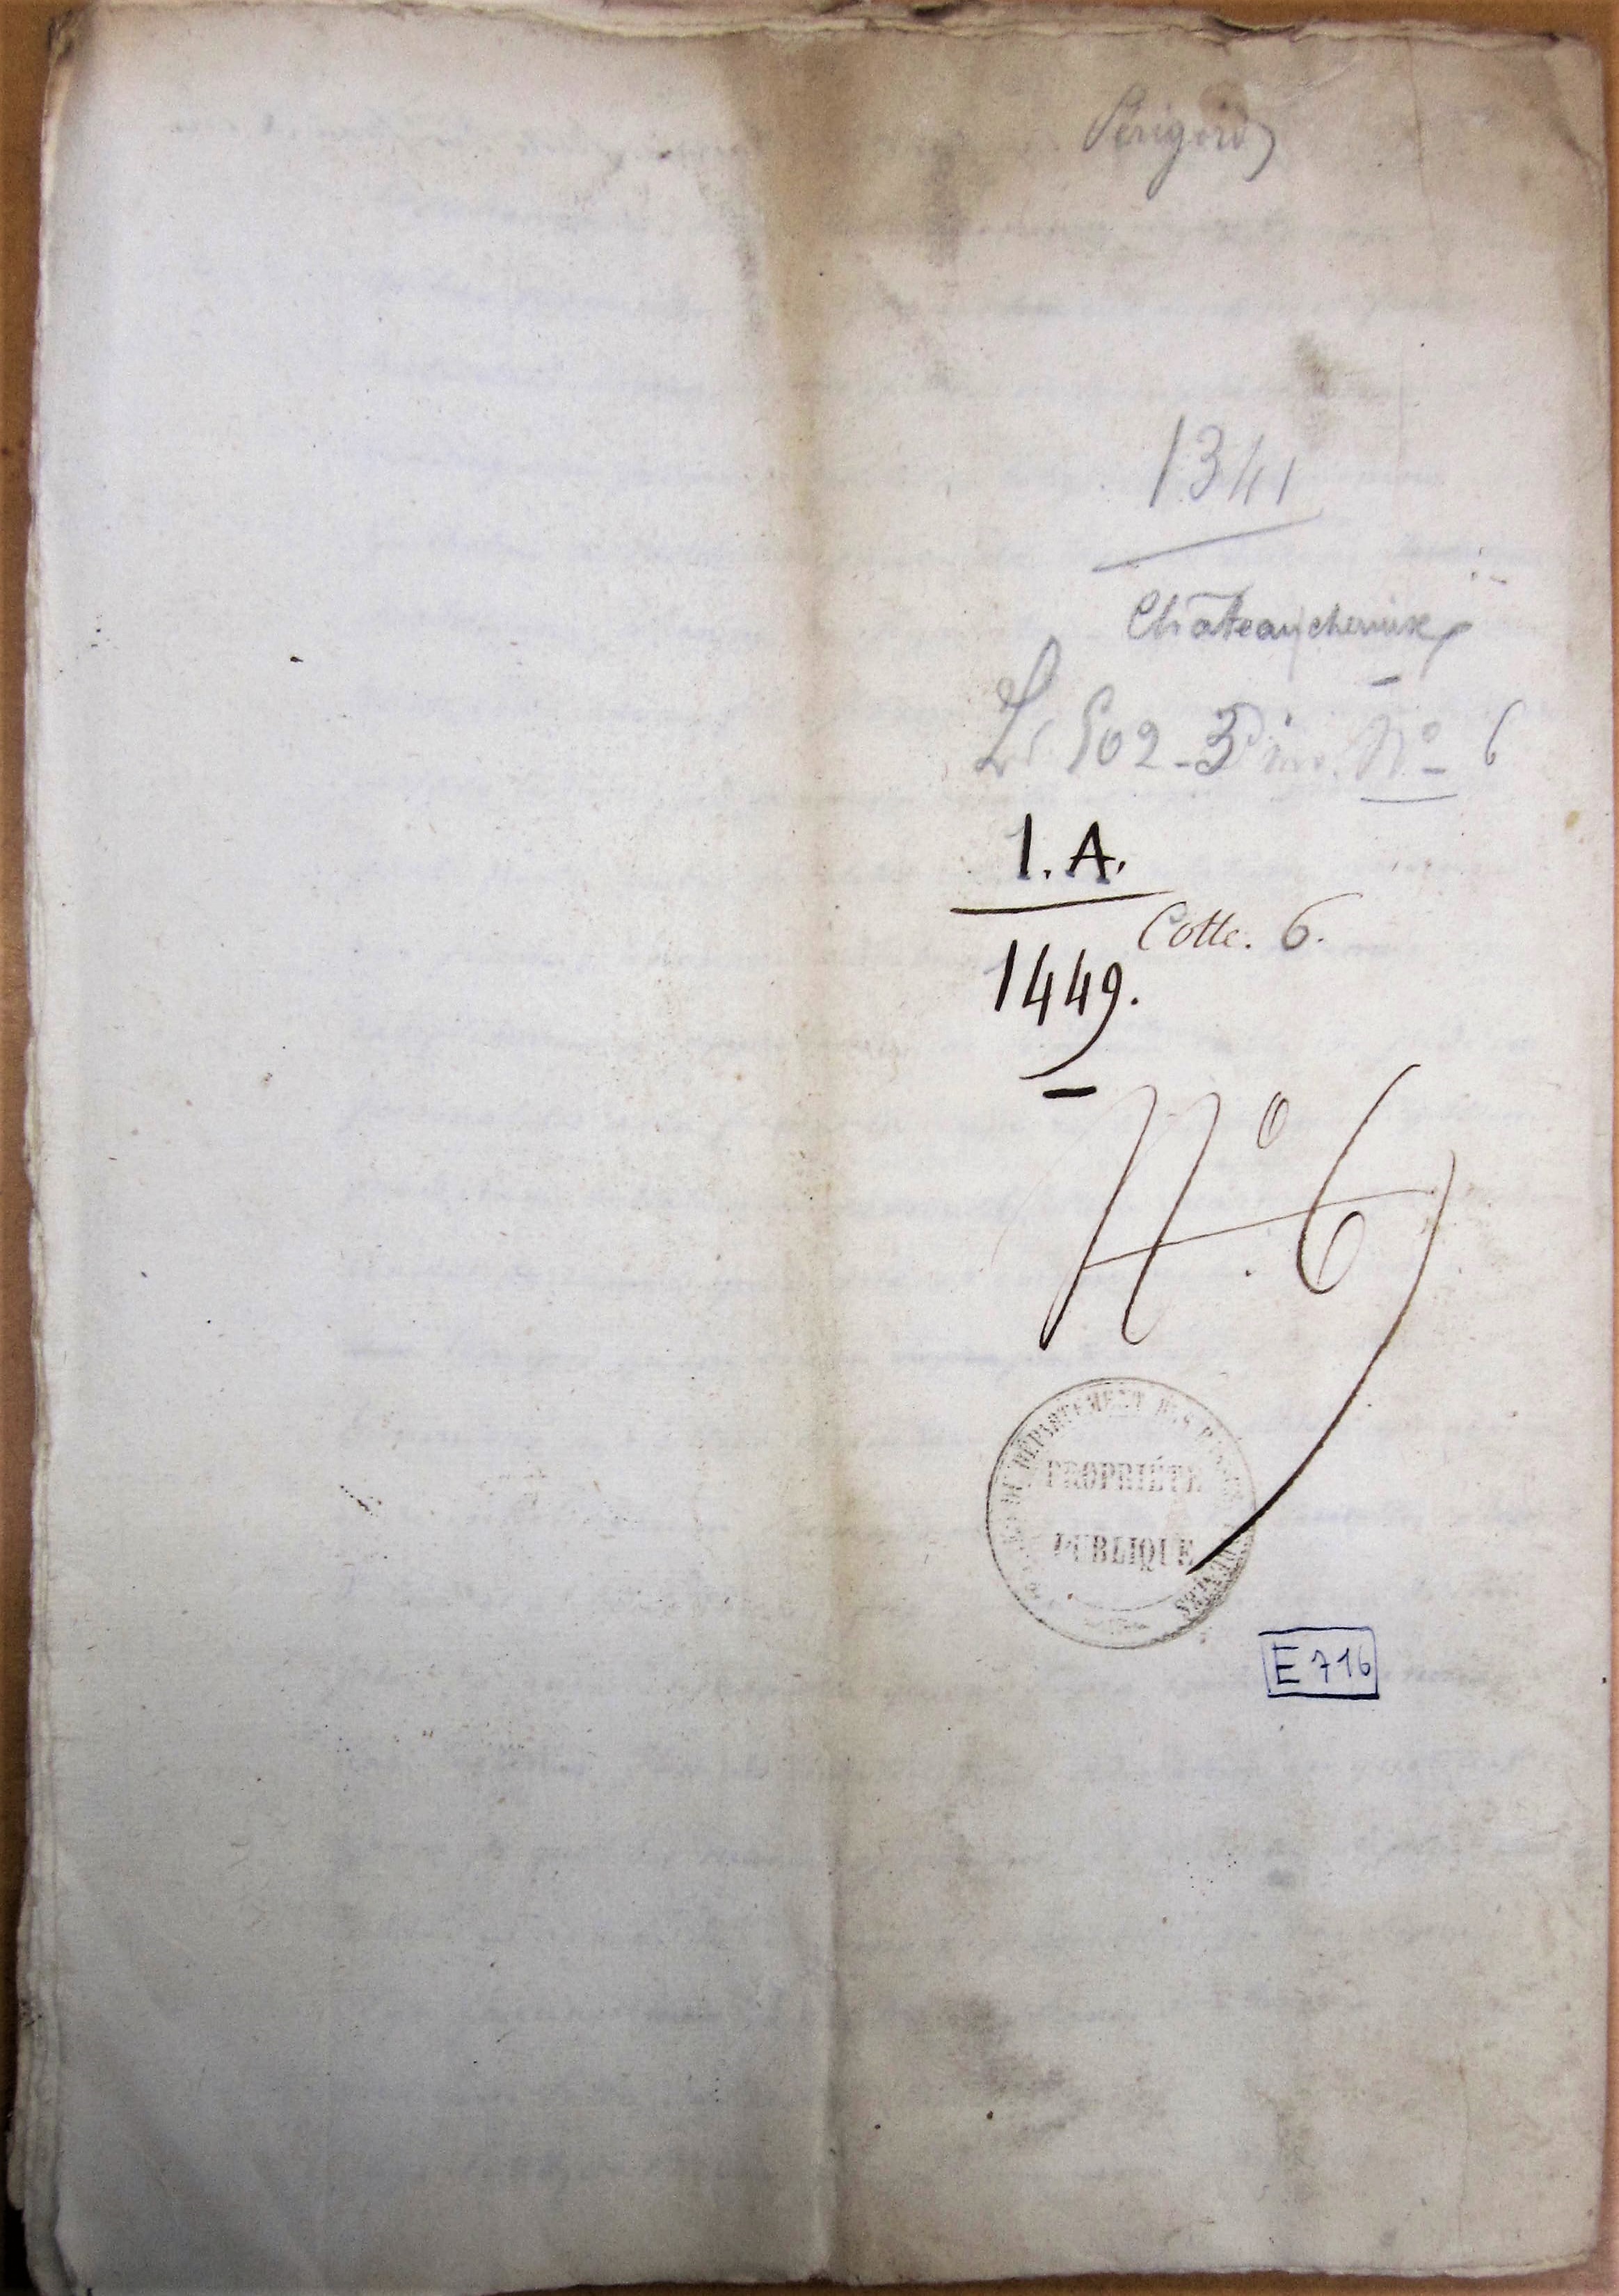 Périgord
1341
Châteauchervix
502 - 3 N° 6
1. A.
Cotte. 6.
1449.
N° 6
DÉPARTEMENT DES
PROPRIÉTÉ
PUBLIQUE
E 716